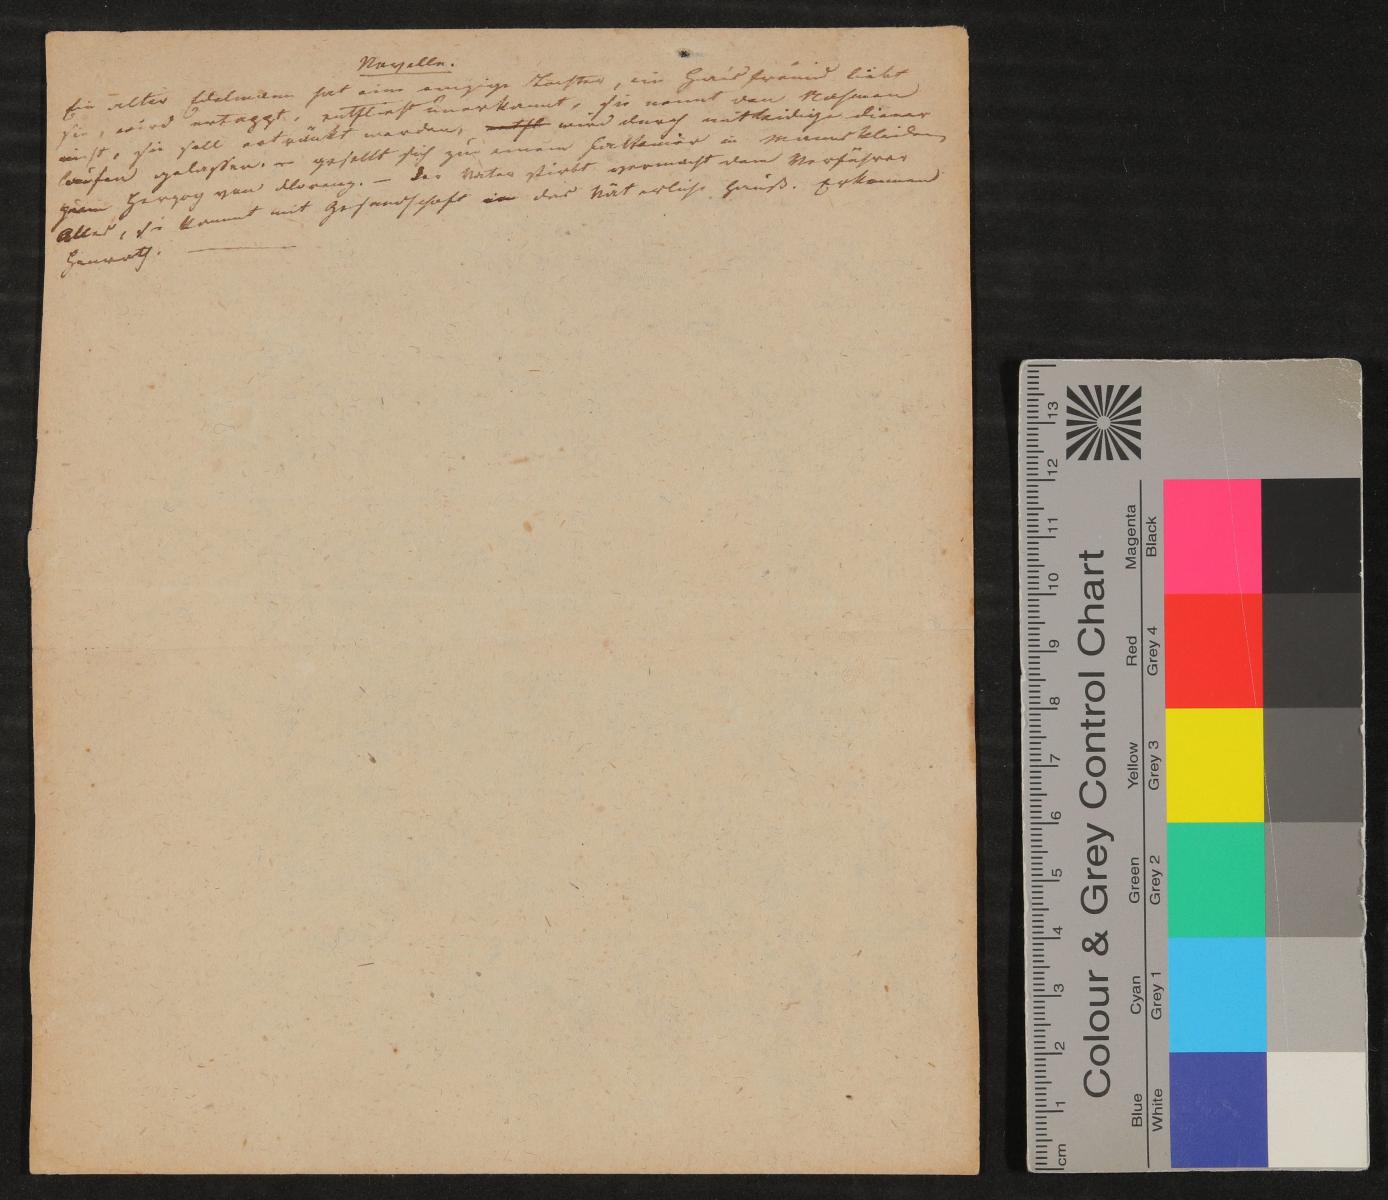 Novelle.
Ein alter Edelmann hat eine einzige Tochter, ein Hausfreund liebt
sie, wird ertappt, entflieht unerkannt, sie nennt den Nahmen
nicht, sie soll ertränkt werden, wird durch mitleidige Diener
laufen gelassen. – gesellt sich zu einem in Mannskleidern
zum Herzog von Florenz. – Der Vater stirbt vermacht dem Verführer
Alles, sie kommt mit Gesandschaft in das Väterliche Hauß. Erkennen
Heurath.
13
12
11
10
9
8
7
6
5
4
3
2
1
cm
Colour & Grey Control Chart
Magenta
Red
Yellow
Green
Cyan
Blue
Black
Grey 4
Grey 3
Grey 2
Grey 1
White